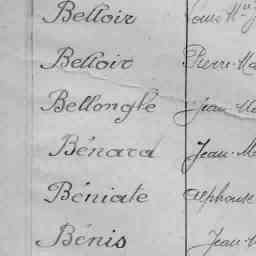 Belloir Louis M
Belloir Pierre-Ma
Bellonglé Jean-Ma
Bénard Jean-M
Béniate Alphonse
Bénis Jean-M